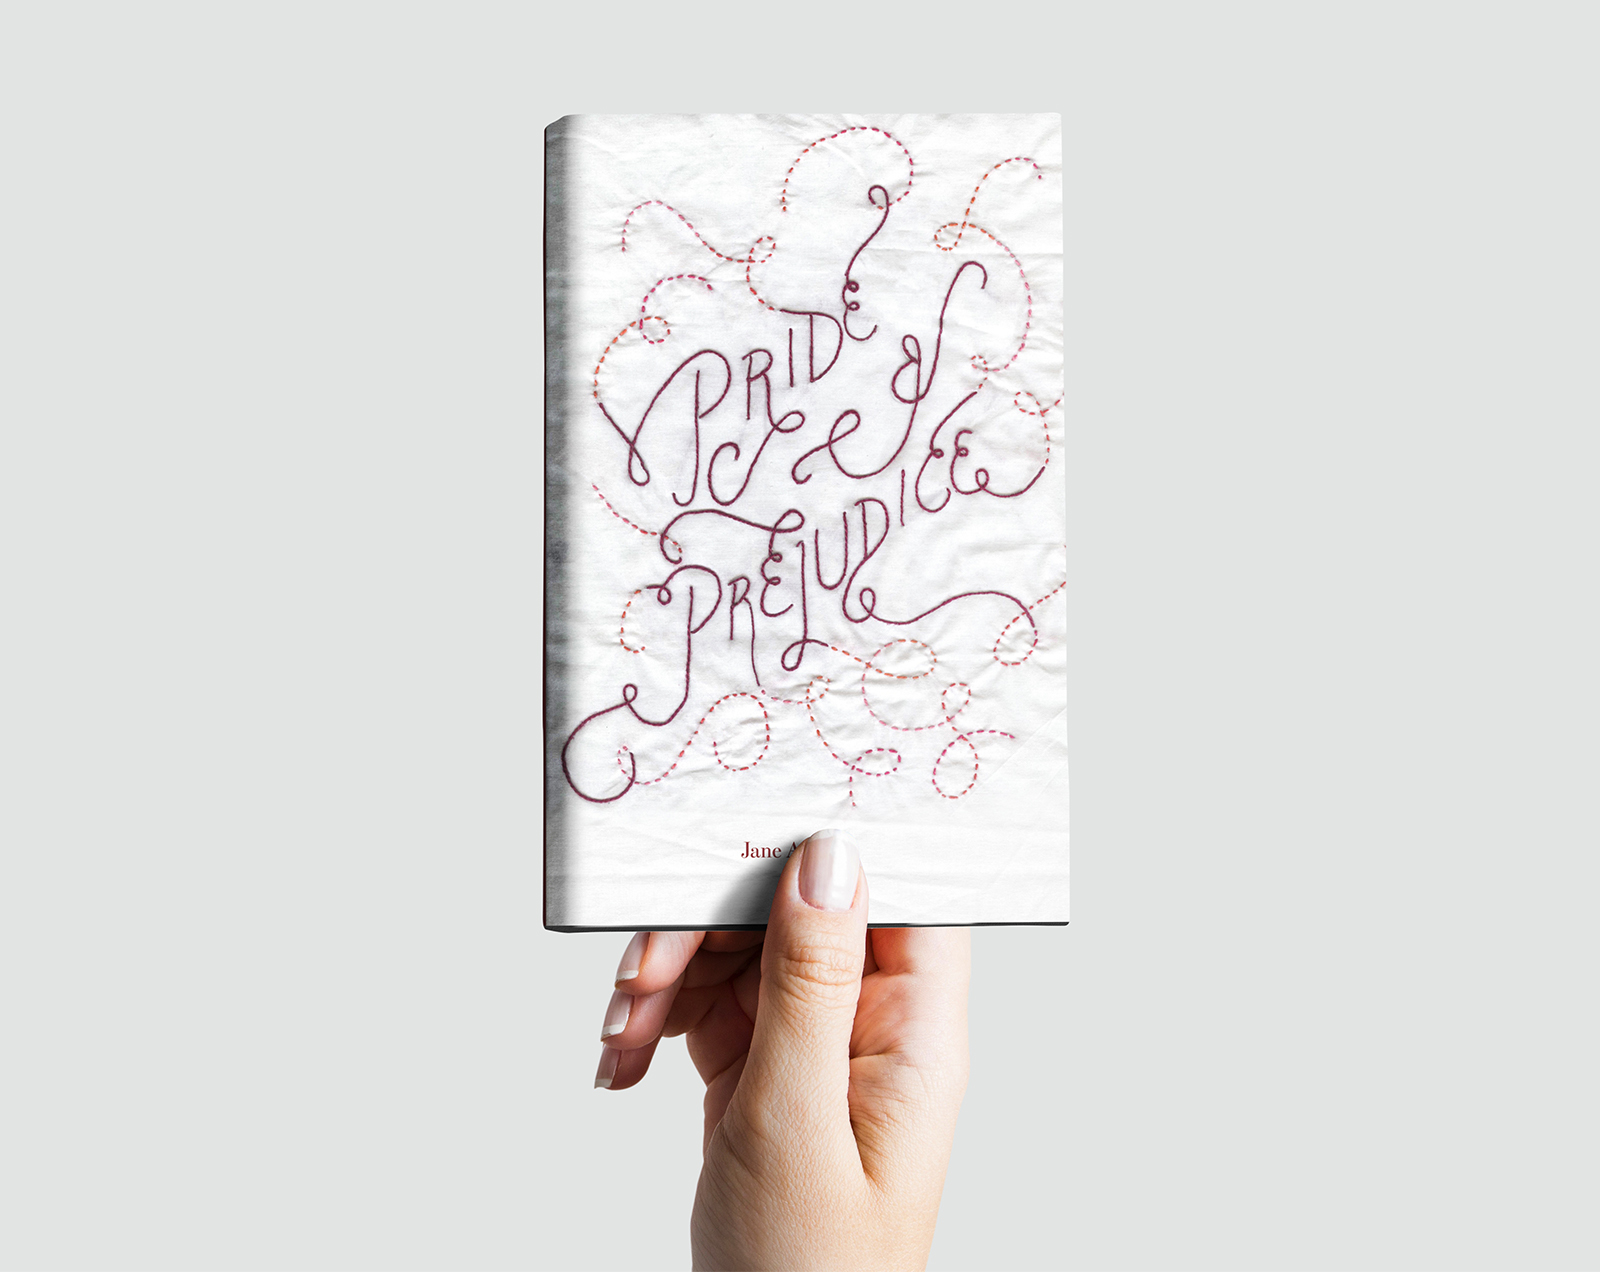 PRIDE
&
PREJUDICE
Jane A